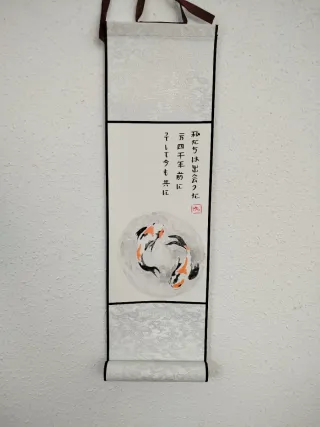 私たちは出会った
五四千年前に
そして今も共に